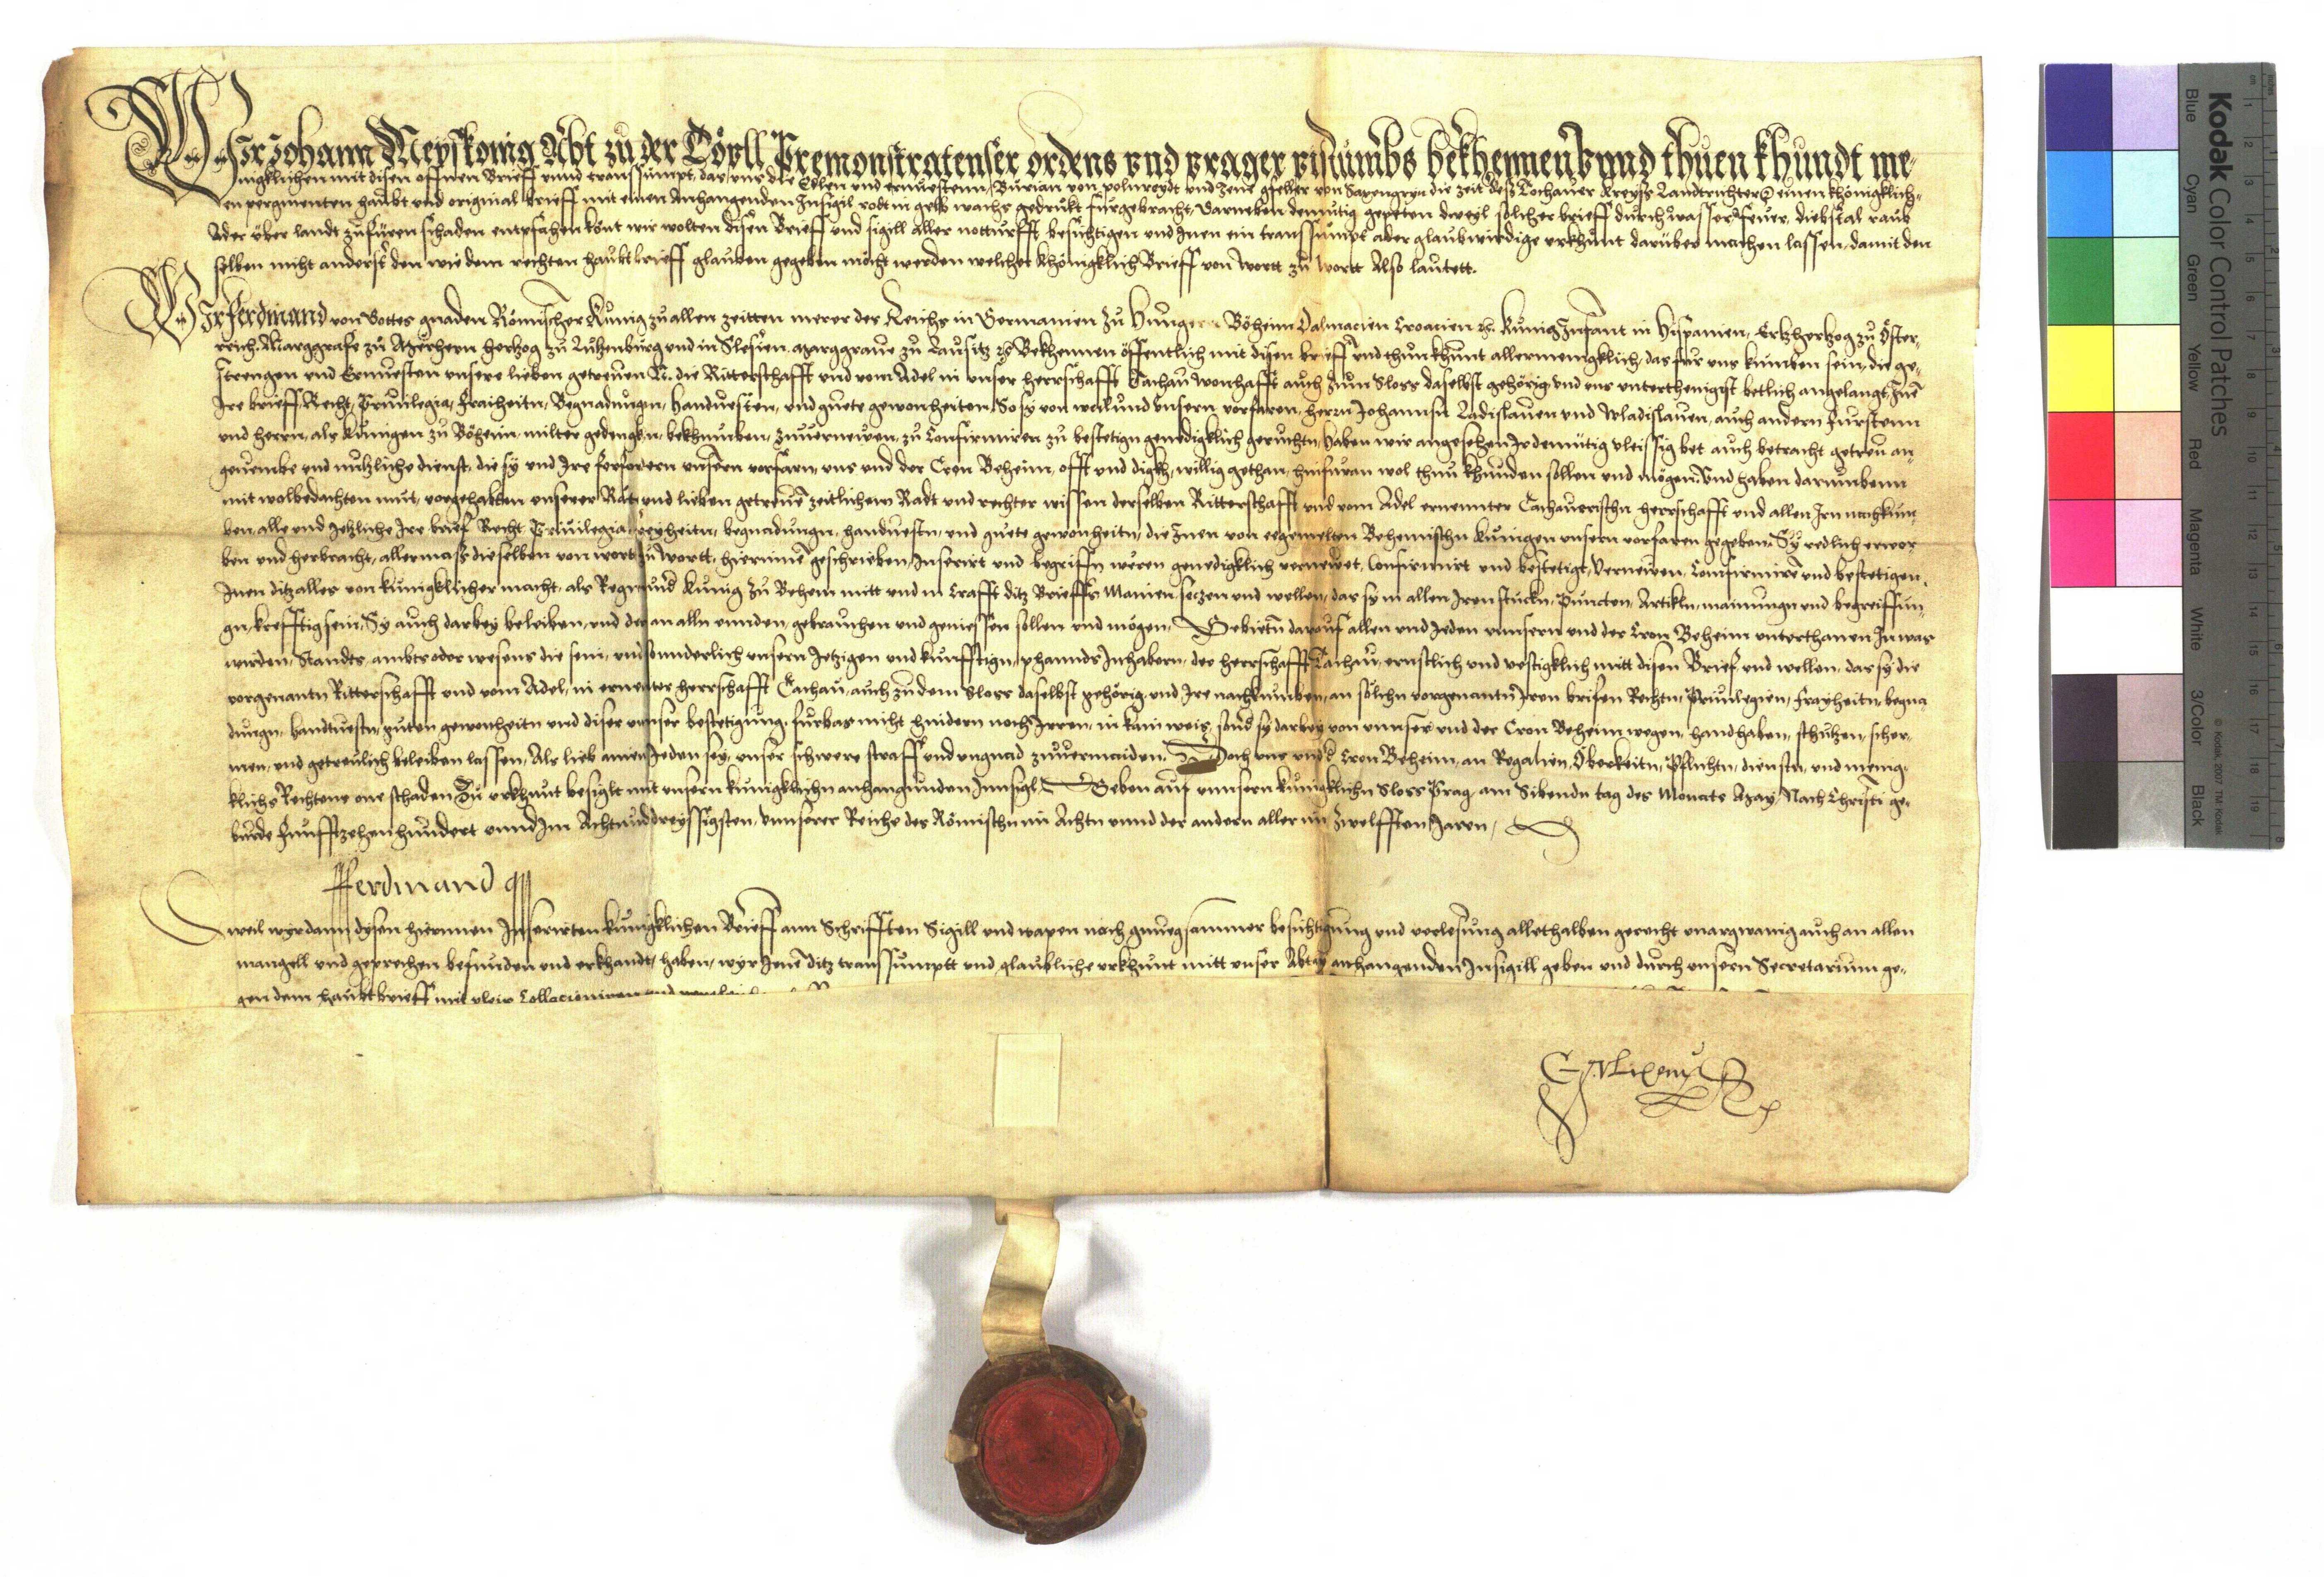 Wir Johann Meyskonig Abt zu der Töpll Premonstratenser ordens vnd prager bistumbs bekhennen vnnd thuen khundt me-
nigklichen mit disen offnen Brieff vnnd transsumpt, das vns die Edlen vnd ernuesten, Burian von und die zeit deß Tachauer Kreyß Landtrichter einen khönigklich-
en pergmenten haubt vnd original brieff mit einen Anhangenden Insigil rodt in gelb wachs gedrukt furgebracht, Darneben demütig gepeten dweyl solcher brieff durch wasser, Feuer, diebstal raub
Ader über landt zufüren schaden entpfahen könt wir wolten disen Brieff vnd sigill aller notturfft besichtigen vnd Inen ein transsumpt ader glaubwirdige vrkhunt darüber machen lassen, damit den
selben nicht anderst den wie dem rechten haubtbrieff glauben gegeben möcht werden welcher khönigklich Brieff von Wort zu Wortt Also lautett.
Wir Ferdinand von Gottes gnaden Römischer Kunig zu allen zeitten merer des Reichs in Germanien zu Hungern Böheim Dalmacien Croacien zc. Kunig Infant in Hispanien, Ertzhertzog zu Öster-
reich Marggrafe zu Merhern Hertzog zu Lutzenburg vnd in Slesien marggraue zu Lausitz zc Bekhennen öffentlich mit disen brieff vnd thun khunt allermenigklich, das fur vns kumben sein, die ge-
strengen vnd Ernuesten vnsere lieben getreuen N. die Ritterschafft vnd vom Adel in vnser herrschafft Tachau wonhafft auch zum Sloss daselbst gehörig vnd vns vnterthenigist betlich angelangt, Inē
Ire brieff, Recht, Priuilegia, Fraiheitn, Begnadungen, Handuesten, vnd guete gewonheiten, So sy von weilund vnsern vorfaren, herrn Johannsn Ladislauen vnd Wladislauen, auch andern Furstenn
vnd herrn, als Kunigen zu Böheim, milter gedengkn, bekhumben, zuuerneuen, zu Confirmiren zu bestetign genedigklich geruchtn, Haben wir angesehen Ir demütig vleissig bet auch betracht getreu an-
geuembe vnd nutzliche dienst, die sy vnd Ire forfordern vnsern vorfarn, vns vnd der Cron Beheim, offt vnd digkh, willig gethan, hinfuran wol thun khunden sollen vnd mögen, Vnd haben darumbenn
mit wolbedachten mut, vorgehabten vnserer Räte vnd lieben getreuē zeitlichem Radt vnd rechter wissen derselben Ritterschafft vnd vom Adel ernennter Tachauerischn herrschafft vnd allen Irn nachkum-
ben, alle vnd Jetzliche Ire brief Recht Priuilegia, freyheitn, begnadungn, handuestn, vnd guete gewonheitn, die Inen von egemelten Behemischn Kunigen vnsern vorfaren gegeben, Sy redlich erwor-
ben vnd herbracht, allermaß dieselben von wort zu wortt, hierinnē geschrieben, Inserirt vnd begriffn weren genedigklich verneuet, Confirmirt vnd bestetigt, Verneuen, Confirmirē vnd bestetigen,
Inen ditz alles von kunigklicher macht, als Regirund Kunig zu Behem mitt vnd in Crafft ditz Brieffs Mainen seczen vnd wellen, das sy in allen Iren stuckn, Puncten, Artikln, mainungn vnd begreiffun-
gn, krefftig sein, Sy auch darbey beleiben, vnd der an alln ennden, gebrauchen vnd geniessen sollen vnd mögen, Gebietn darauf allen vnd Jeden vnnsern vnd der Cron Beheim vnterthanen In was
wirden, Standes, ambts oder wesens die sein, vnd sonnderlich vnsern Jetzigen vnd kunfftign, phannds Inhabern, der herrschafft Tachau, ernstlich vnd vestigklich mitt disen Brief, vnd wellen, das sy die
vorgenantn Ritterschafft vnd vom Adel, in ernenter herrschafft Tachau, auch zu dem Sloss daselbst gehörig, vnd Ire nachkumben, an solhn vorgenantn Iren briefen Rechtn, Priuilegien, Frayheitn, begna-
dungn, Handtuestn, guten gewonheitn vnd diser vnnser bestetigung, furbas nicht hindern noch Irren, in kain weis, sond sy darbey von vnnser vnd der Cron Beheim wegen, handhaben, schutzen, scher-
men, vnd getreulich beleiben lassen, Als lieb ainen Jeden sey, vnser schwere straff vnd vngnad zuuermeiden. Doch vns vnd d Cron Beheim, an Regalien, Oberkeitn, Pflichtn, dienstn, vnd menig-
klichs Rechtens one schaden Zu vrkhunt besiglt mit vnsern kunigklichn anhangunden Innsigl, Geben auf vnnsern kunigklichn Sloss Prag am Sibendn tag des Monats May, Nach Christi ge-
burde Funfftzehenhundert vnnd Im Achtunddreyssigsten, vnnserer Reiche des Römischn im Achtn vnnd der andern aller im zwelfften Jaren,
Ferdinand
weil wyr dann dysen hierinnen Inserirten kunigklichen Brieff ann Schrifften Sigill vnd wapen nach gnuegsammer besichtigung vnd verlesung allethalben gerecht vnargwanig auch an allen
mangell vnd geprechen befunden vnd erkhandt, haben, wyr Jenē ditz transsumptt vnd glaubliche vrkhunt mitt vnser Abtey anhangenden Insigill geben vnd durch vnsern Secretarium ge-
gen dem haubtbrieff mit vleis Collacioniren
Kodak Color Control Patches
© Kodak, 2007 TM: Kodak
Blue Cyan Green Yellow Red Magenta White 3/Color Black
cm 1 2 3 4 5 6 7 8 9 10 11 12 13 14 15 16 17 18 19
inches 1 2 3 4 5 6 7 8